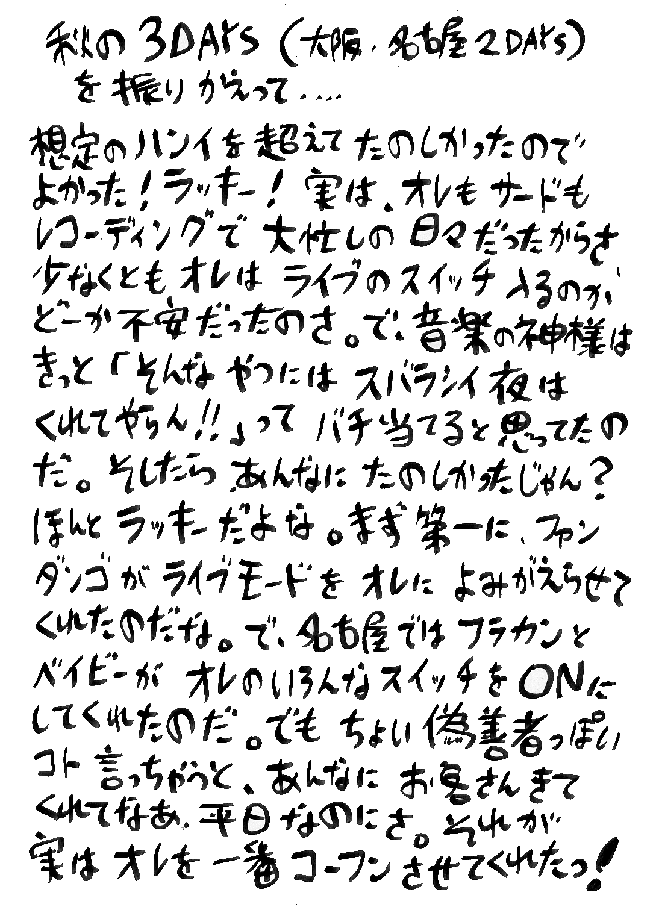 秋の3DAYS(大阪.名古屋2DAYS)
を振りかえって....
想定のハンイを超えてたのしかったので
よかった!ラッキー!実は、オレもサードも
レコーディングで大忙しの日々だったからさ
少なくともオレはライブのスイッチ入るのか
どーか不安だったのさ。で、音楽の神様は
きっと「そんなやつにはスバラシイ夜は
くれてやらん!!」ってバチ当てると思ってたの
だ。そしたらあんなにたのしかったじゃん?
ほんとラッキーだよな。まず第一に、ファン
ダンゴがライブモードをオレによみがえらせて
くれたのだな。で、名古屋ではフラカンと
ベイビーがオレのいろんなスイッチをONに
してくれたのだ。でもちょい偽善者っぽい
コト言っちゃうと、あんなにお客さんきて
くれてなあ、平日なのにさ。それが
実はオレを一番コーフンさせてくれたっ!